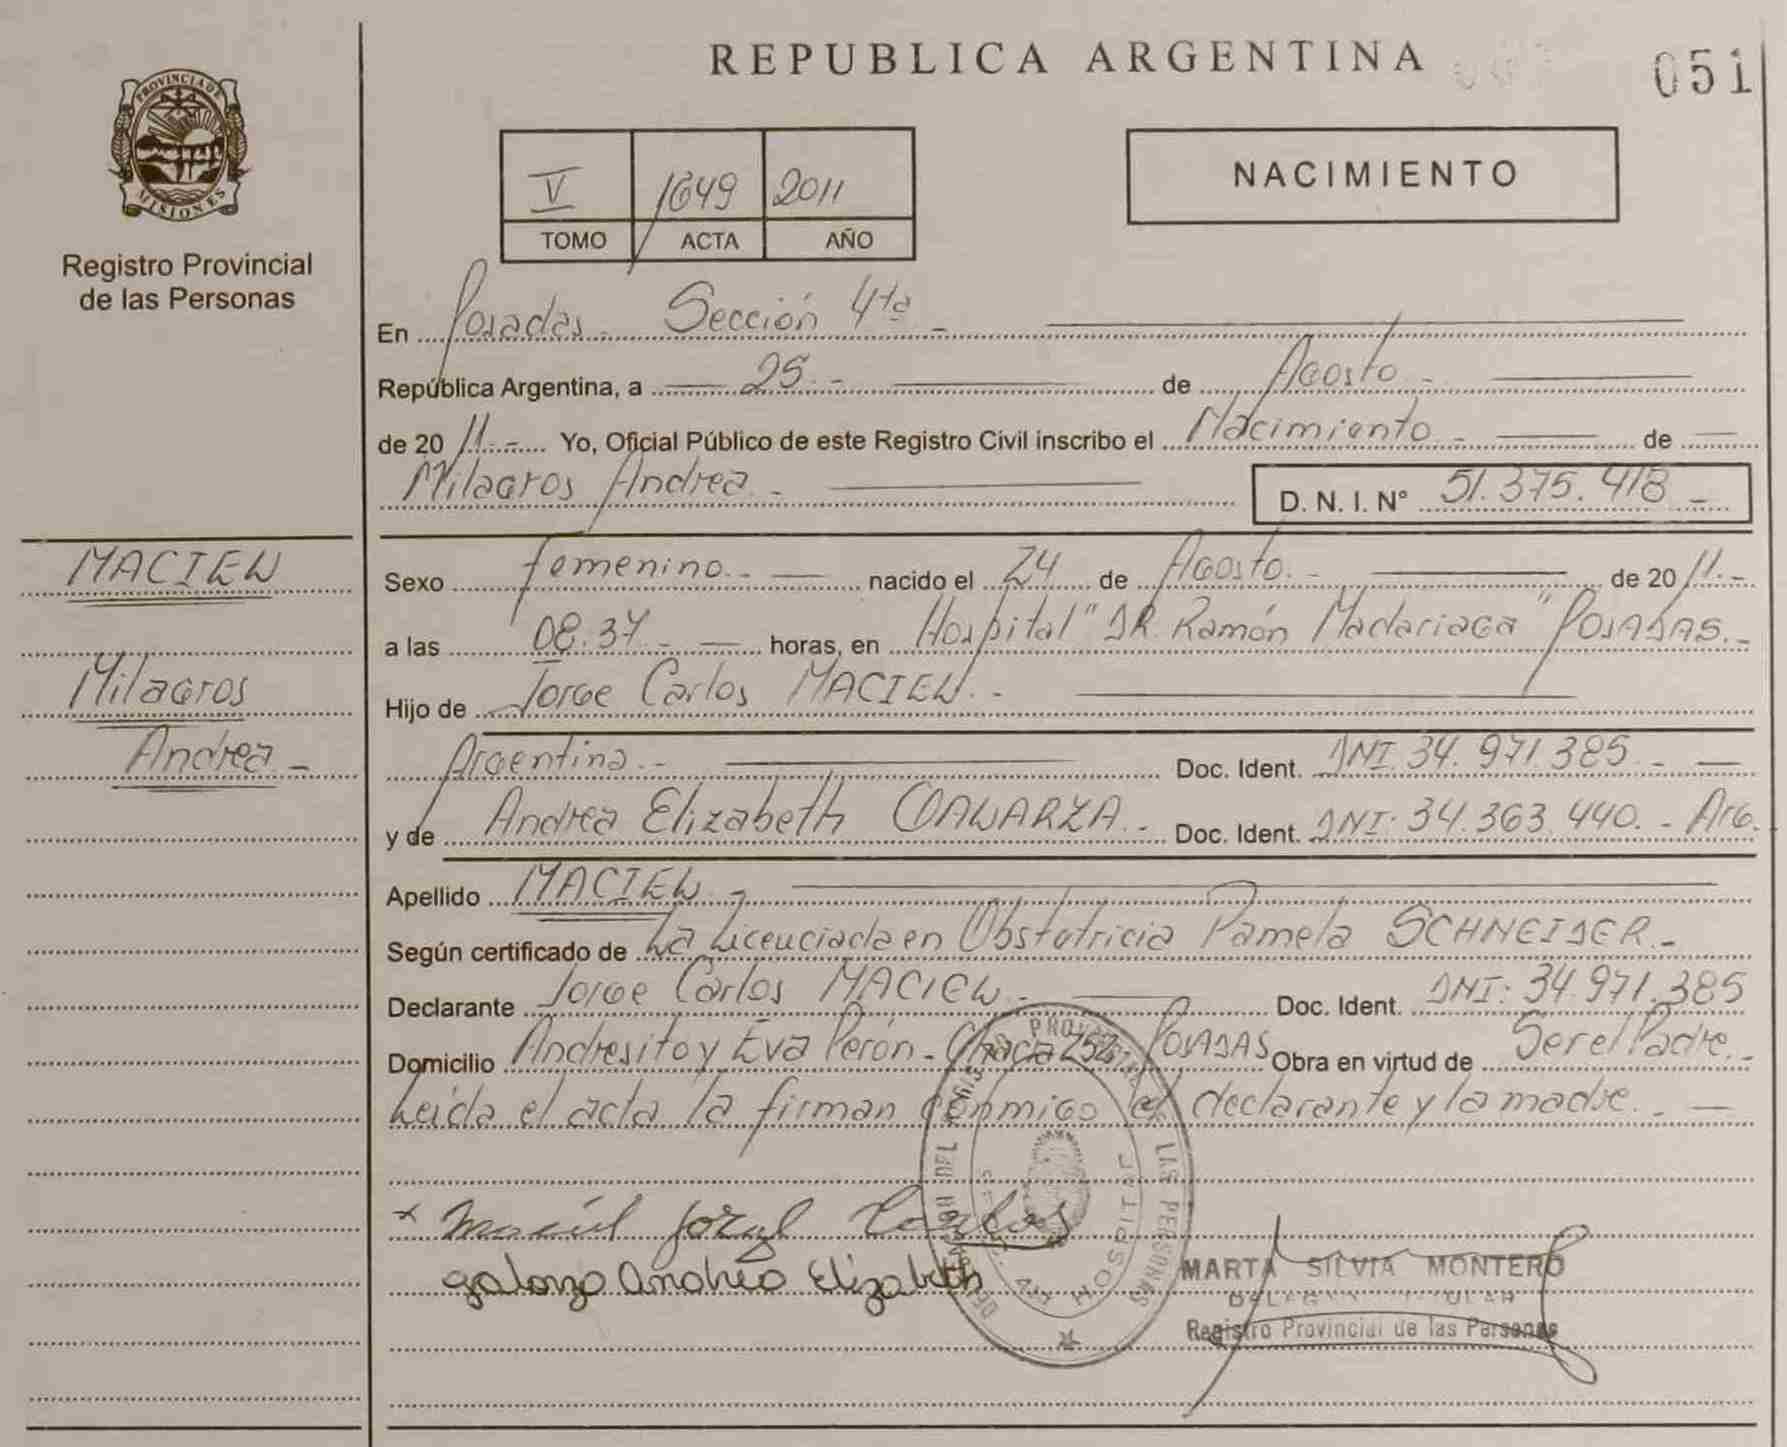 REPUBLICA ARGENTINA
051
PROVINCIA DE
MISIONES
Registro Provincial
de las Personas
V 1649 2011
TOMO ACTA AÑO
NACIMIENTO
En Posadas - Sección 4ta -
República Argentina, a 25 - de Agosto -
de 20 11 - Yo, Oficial Público de este Registro Civil inscribo el Nacimiento - de
Milagros Andrea - D. N. I. N° 51.375.418 -
MACIEL
Milagros
Andrea -
Sexo femenino - nacido el 24 de Agosto - de 20 11 -
a las 08.37 - horas, en Hospital "DR. Ramón Madariaga" POSADAS -
Hijo de Jorge Carlos MACIEL -
Argentina - Doc. Ident. DNI. 34.971.385 -
y de Andrea Elizabeth GALARZA - Doc. Ident. DNI: 34.363.440. - Arg.
Apellido MACIEL -
Según certificado de La Licenciada en Obstetricia Pamela SCHNEIDER -
Declarante Jorge Carlos MACIEL - Doc. Ident. DNI: 34.971.385
Domicilio Andresito y Eva Perón - Chacra 252 POSADAS Obra en virtud de Ser el Padre -
Leída el acta la firman conmigo el declarante y la madre. -
x Maciel Jorge Carlos
galarza Andrea Elizabeth
LAS PERSONAS
HOSPITAL
MARTA SILVIA MONTERO
Registro Provincial de las Personas